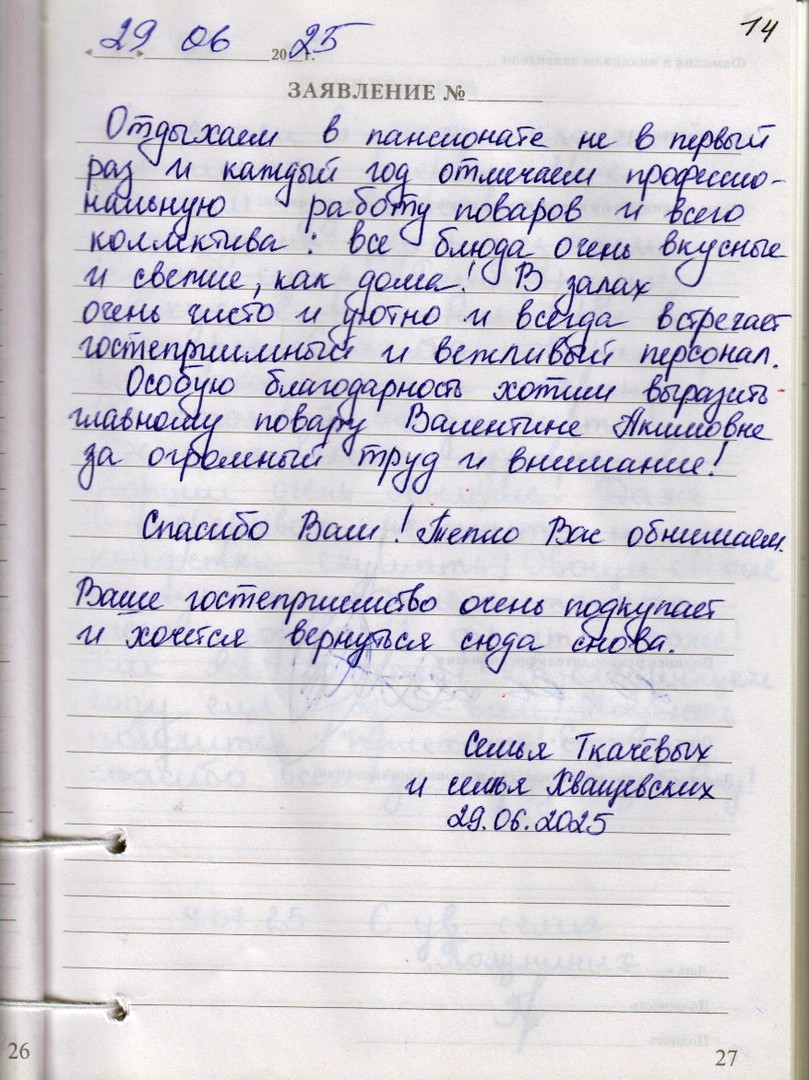 14
29 06 2025г.
ЗАЯВЛЕНИЕ №
Отдыхаем в пансионате не в первый
раз и каждый год отмечаем профессио-
нальную работу поваров и всего
коллектива: все блюда очень вкусные
и свежие, как дома! В залах
очень чисто и уютно и всегда встречает
гостеприимный и вежливый персонал.
Особую благодарность хотим выразить
главному повару Валентине Акимовне
за огромный труд и внимание!
Спасибо Вам! Тепло Вас обнимаем.
Ваше гостеприимство очень подкупает
и хочется вернуться сюда снова.
Семья Ткачёвых
и семья Хващевских
29.06.2025
26
27